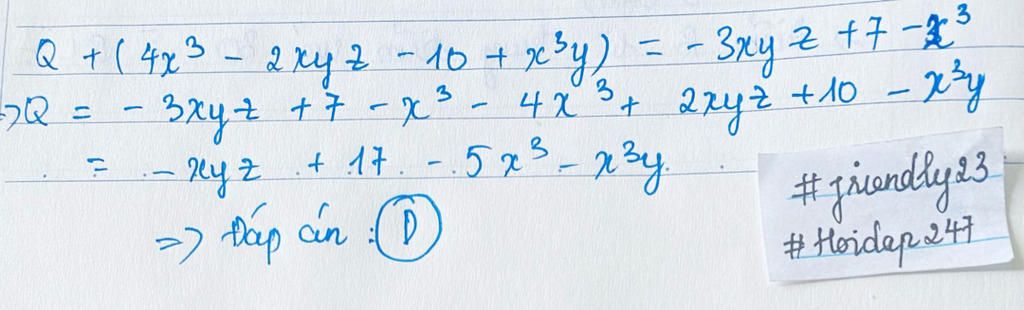 Q + (4x³ - 2xyz - 10 + x³y) = -3xyz + 7 - x³
=> Q = -3xyz + 7 - x³ - 4x³ + 2xyz + 10 - x³y
= -xyz + 17 - 5x³ - x³y.
=> Đáp án : D
#friendly23
#Hoidap247